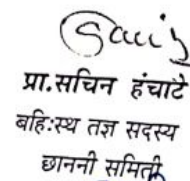 प्रा.सचिन हंचाटे
बहि:स्थ तज्ञ सदस्य
छाननी समिती